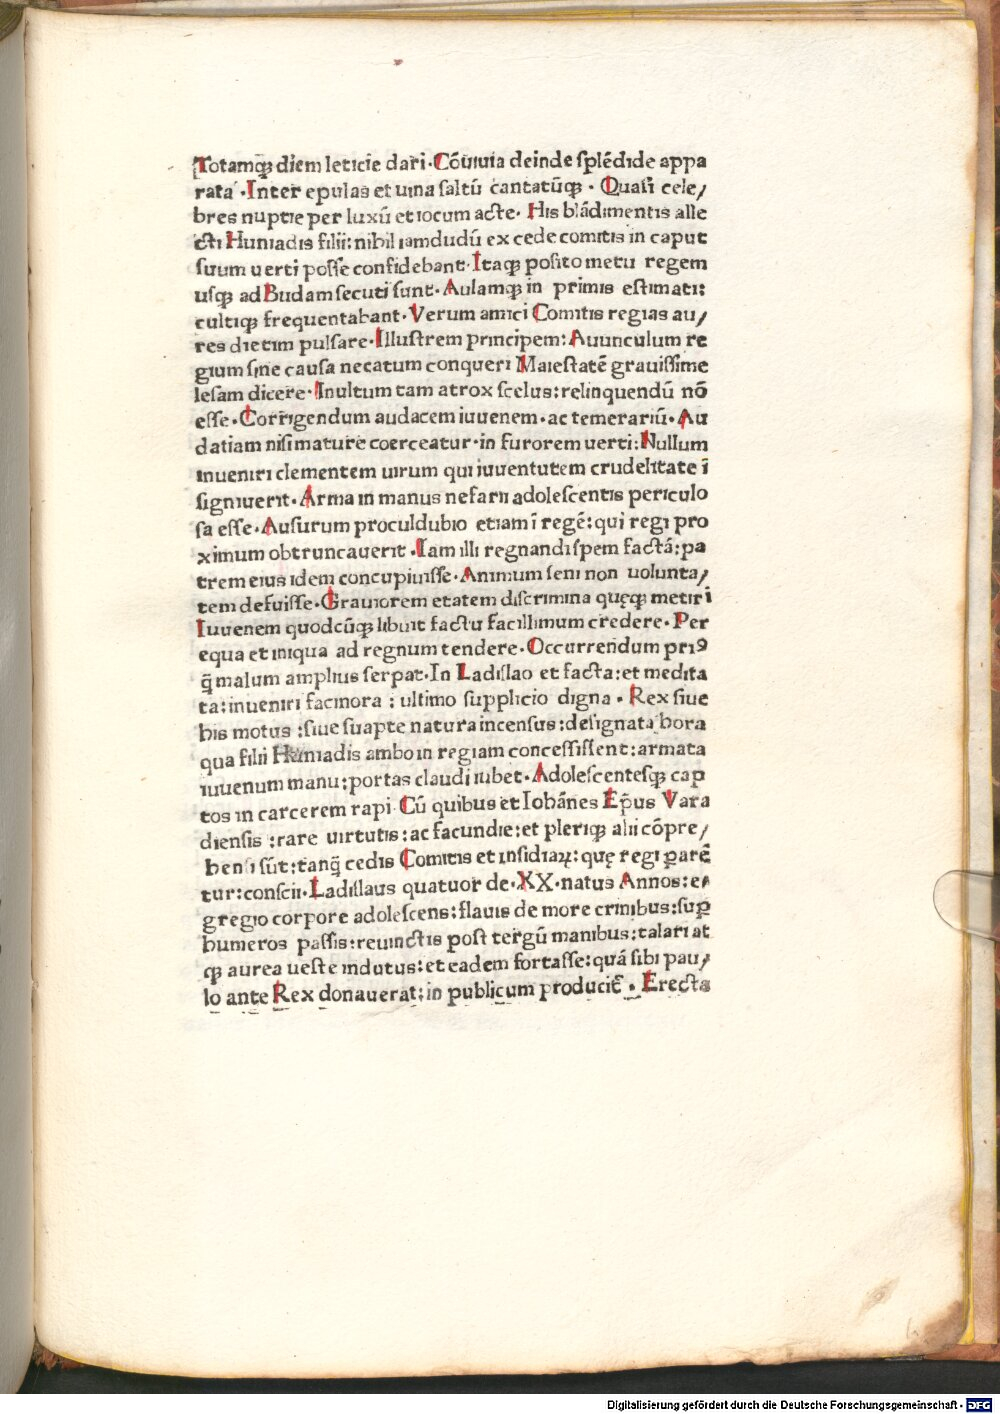 Totamqꝫ diem leticie dari·Cōuiuia deinde ſplēdide appa
rata ·Inter epulas et uina ſaltū cantatūqꝫ · Quaſi cele/
bres nuptie per luxū et iocum acte· His blādimentis alle
cti Huniadis filii: nihil iamdudū ex cede comitis in caput
ſuum uerti poſſe confidebant·Itaqꝫ poſito metu regem
uſqꝫ ad Budam ſecuti ſunt·Aulamqꝫ in primis eſtimati:
cultiqꝫ frequentabant·Verum amici Comitis regias au/
res dietim pulſare·Illuſtrem principem: Auunculum re
gium ſine cauſa necatum conqueri Maieſtatē grauiſſime
leſam dicere·Inultum tam atrox ſcelus: relinquendū nō
eſſe·Corrigendum audacem iuuenem·ac temerariū·Au
datiam niſi mature coerceatur·in furorem uerti: Nullum
inueniri clementem uirum qui iuuentutem crudelitate ī
ſigniuerit·Arma in manus nefarii adoleſcentis periculo
ſa eſſe·Auſurum proculdubio etiam ī regē: qui regi pro
ximum obtruncauerit·Iam illi regnandi ſpem factā: pa
trem eius idem concupiuiſſe·Animum ſeni non uolunta/
tem defuiſſe·Grauiorem etatem diſcrimina quęqꝫ metiri
Iuuenem quodcūqꝫ libuit factu facillimum credere·Per
equa et iniqua ad regnum tendere·Occurrendum priꝰ
q̄ malum amplius ſerpat·In Ladiſlao et facta: et medita
ta: inueniri facinora : ultimo ſupplicio digna · Rex ſiue
his motus : ſiue ſuapte natura incenſus: deſignata hora
qua filii Huniadis ambo in regiam conceſſiſſent: armata
iuuenum manu: portas claudi iubet·Adoleſcentesqꝫ cap
tos in carcerem rapi Cū quibus et Iohānes Ep̄us Vara
dienſis : rare uirtutis: ac facundie: et pleriqꝫ alii cōpre/
henſi sūt: tanq̄ cedis Comitis et inſidiaꝝ: quę regi ꝑarē
tur: conſcii·Ladiſlaus quatuor de·XX·natus Annos: e/
gregio corpore adoleſcens: flauis de more crinibus: ſuꝑ
humeros paſſis: reuinctis poſt tergū manibus: talari at
qꝫ aurea ueſte indutus: et eadem fortaſſe: quā ſibi pau/
lo ante Rex donauerat: in publicum producit̄ · Erecta
Digitalisierung gefördert durch die Deutsche Forschungsgemeinschaft - DFG